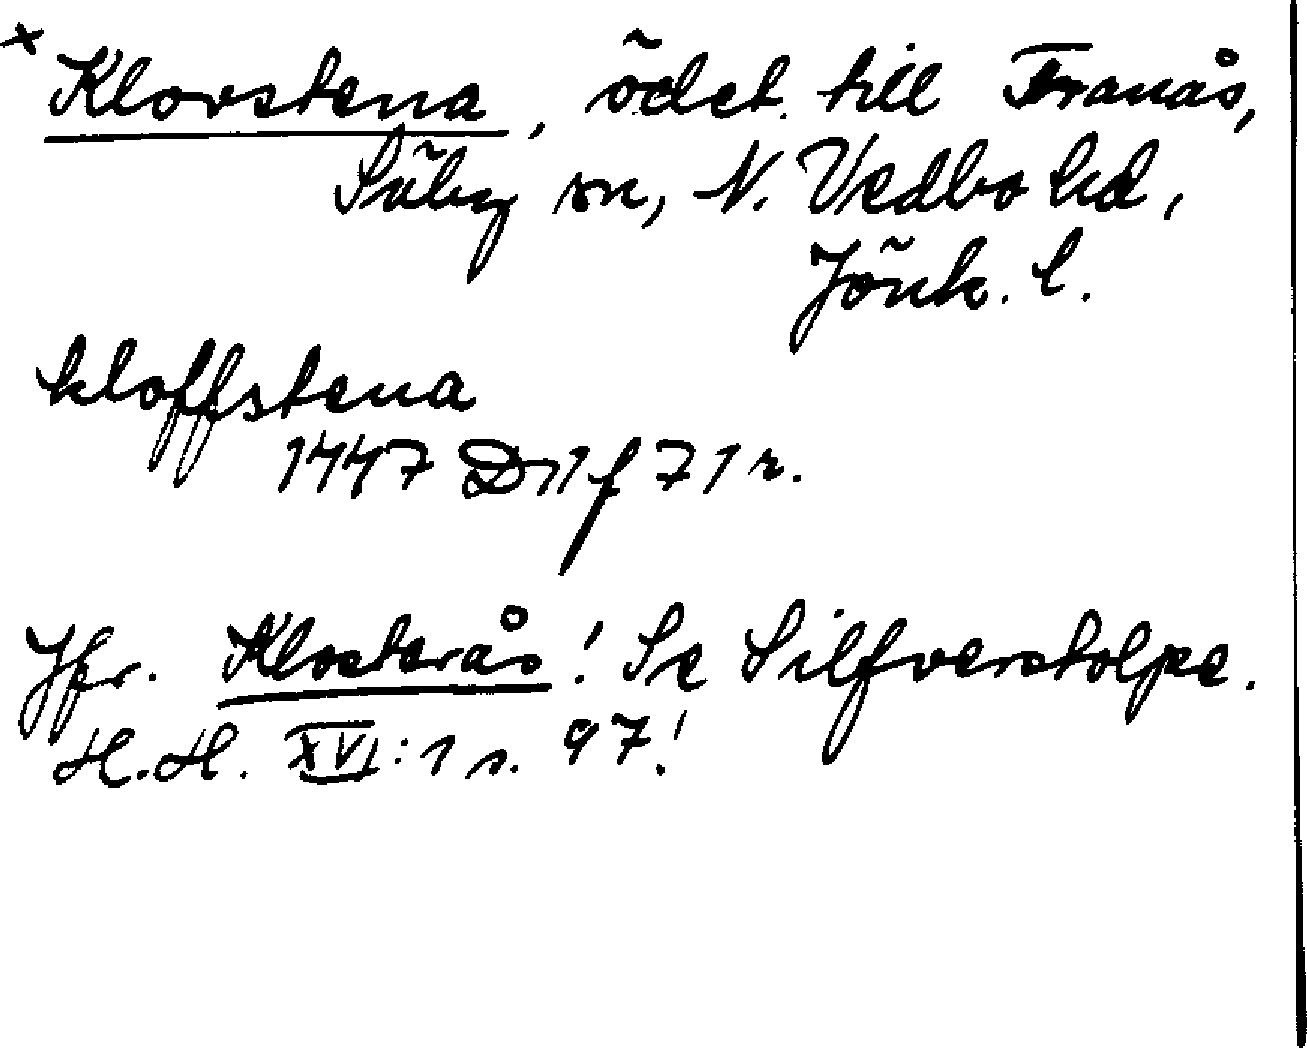 x Klovstena, ödet. till Tranås,
Säby sn, N. Vedbo hd,
Jönk. l.
kloffstena
1447 D 11 f 71 r.
Jfr. Klosterås! Se Silfverstolpe.
H.H. XVI:1 s. 97!